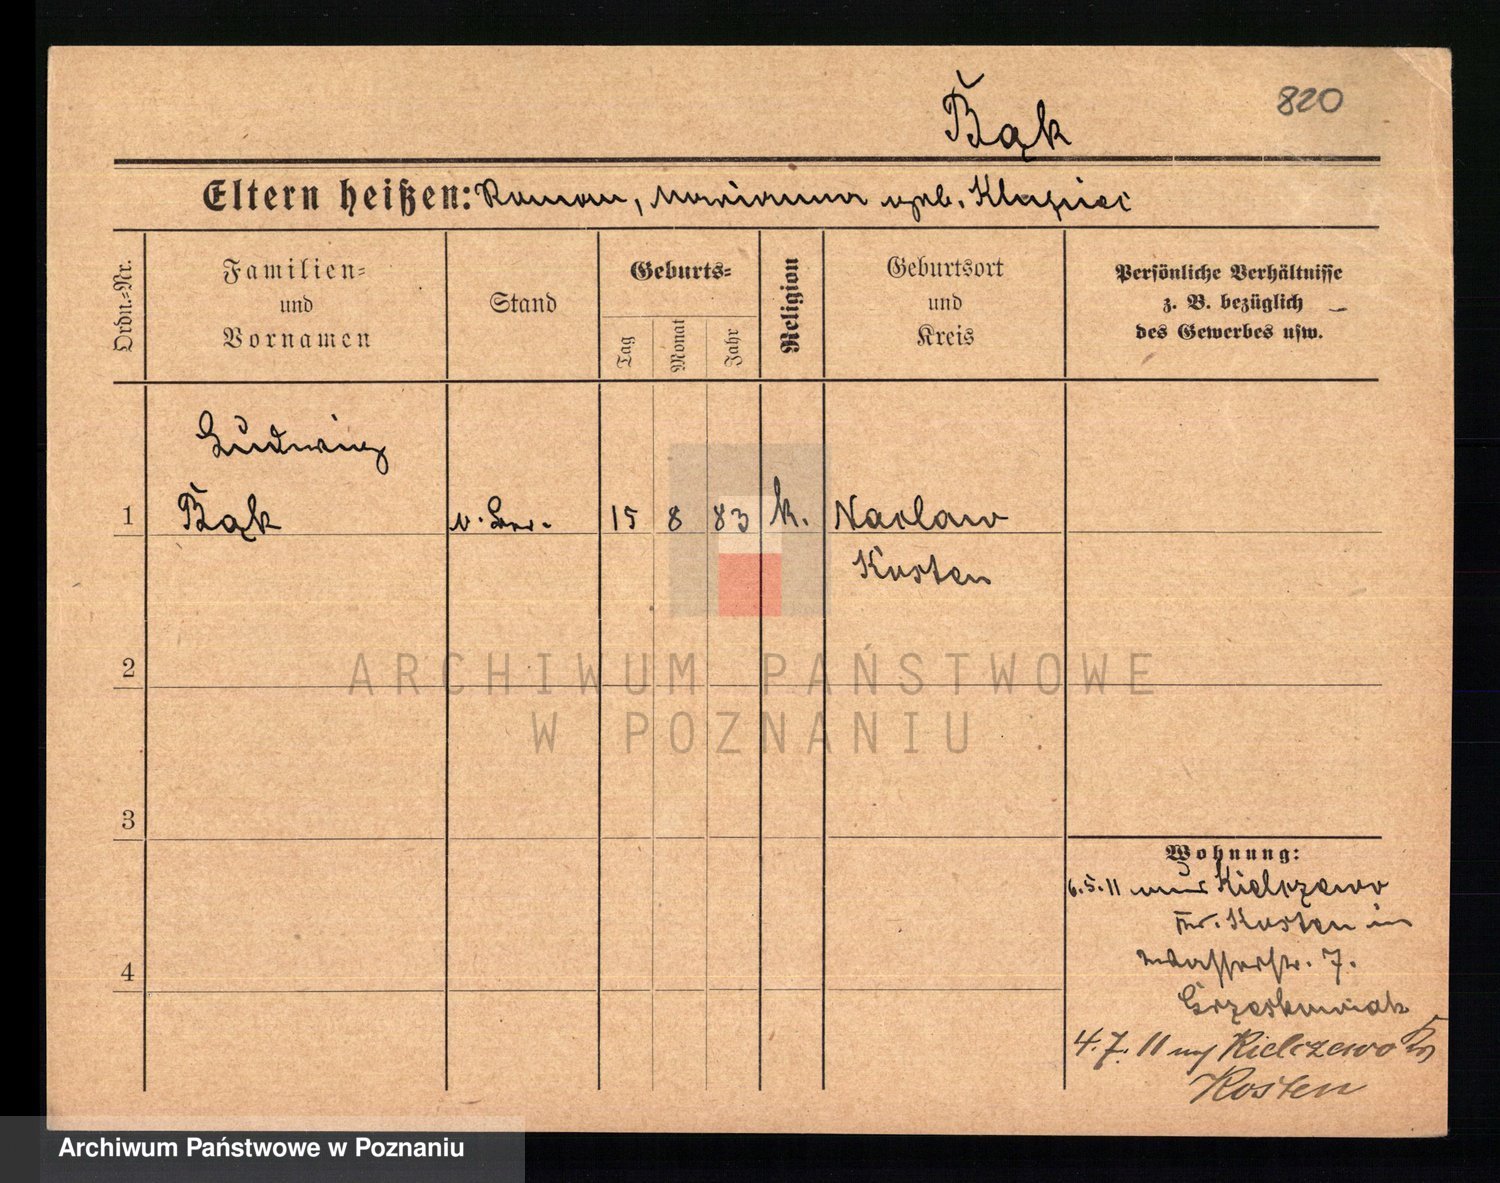 820
Bąk
Eltern heißen: Roman, Marianna geb.
Ordn.=Nr.
Familien=
und
Vornamen
Stand
Geburts=
Tag
Monat
Jahr
Religion
Geburtsort
und
Kreis
Persönliche Verhältnisse
z. B. bezüglich
des Gewerbes usw.
Ludwig
1 Bąk 15 8 83 k. Naclaw
Kosten
2
3
4
Wohnung:
6.5.11 aus Kielczewo
Kr. Kosten in
Wasserstr. 7.
Grzeskowiak
4.7.11 Kielczewo Kr
Kosten
ARCHIWUM PAŃSTWOWE
W POZNANIU
Archiwum Państwowe w Poznaniu